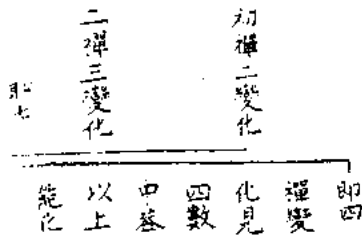 初禪二變化
二禪三變化
即四
禪變
化見
四數
中基
以上
能化